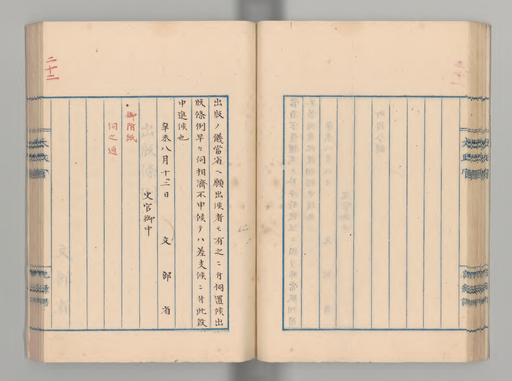 出版ノ儀當省ヘ願出候者モ有之ニ付伺置候出
版條例早々伺相濟不申候テハ差支候ニ付此段
申進候也
辛未八月十三日 文部省
史官御中
御附紙
伺之通
二十二